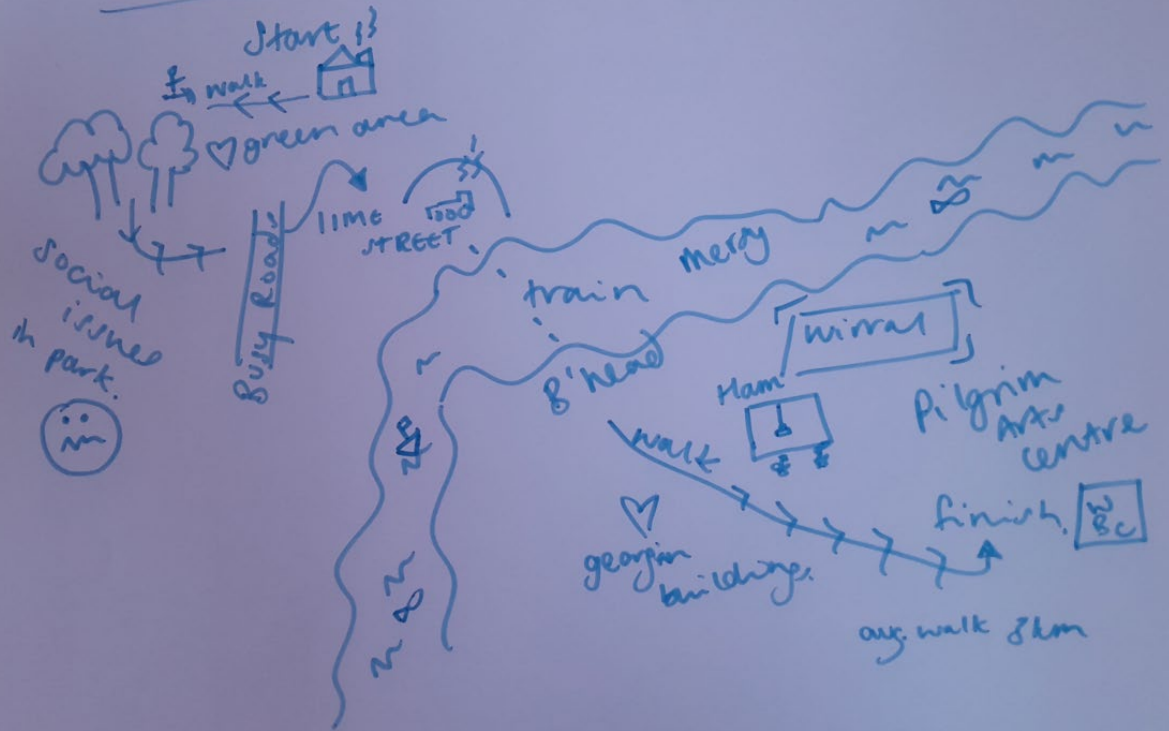 Start
walk
♡ green area
LIME
STREET
Social
issues
in park.
Busy Roads
mersy
train
B'head
Wirral
Ham
Pilgrim
Arts
centre
walk
♡
georgian
buildings.
finish.
W
BC
avg. walk 8km